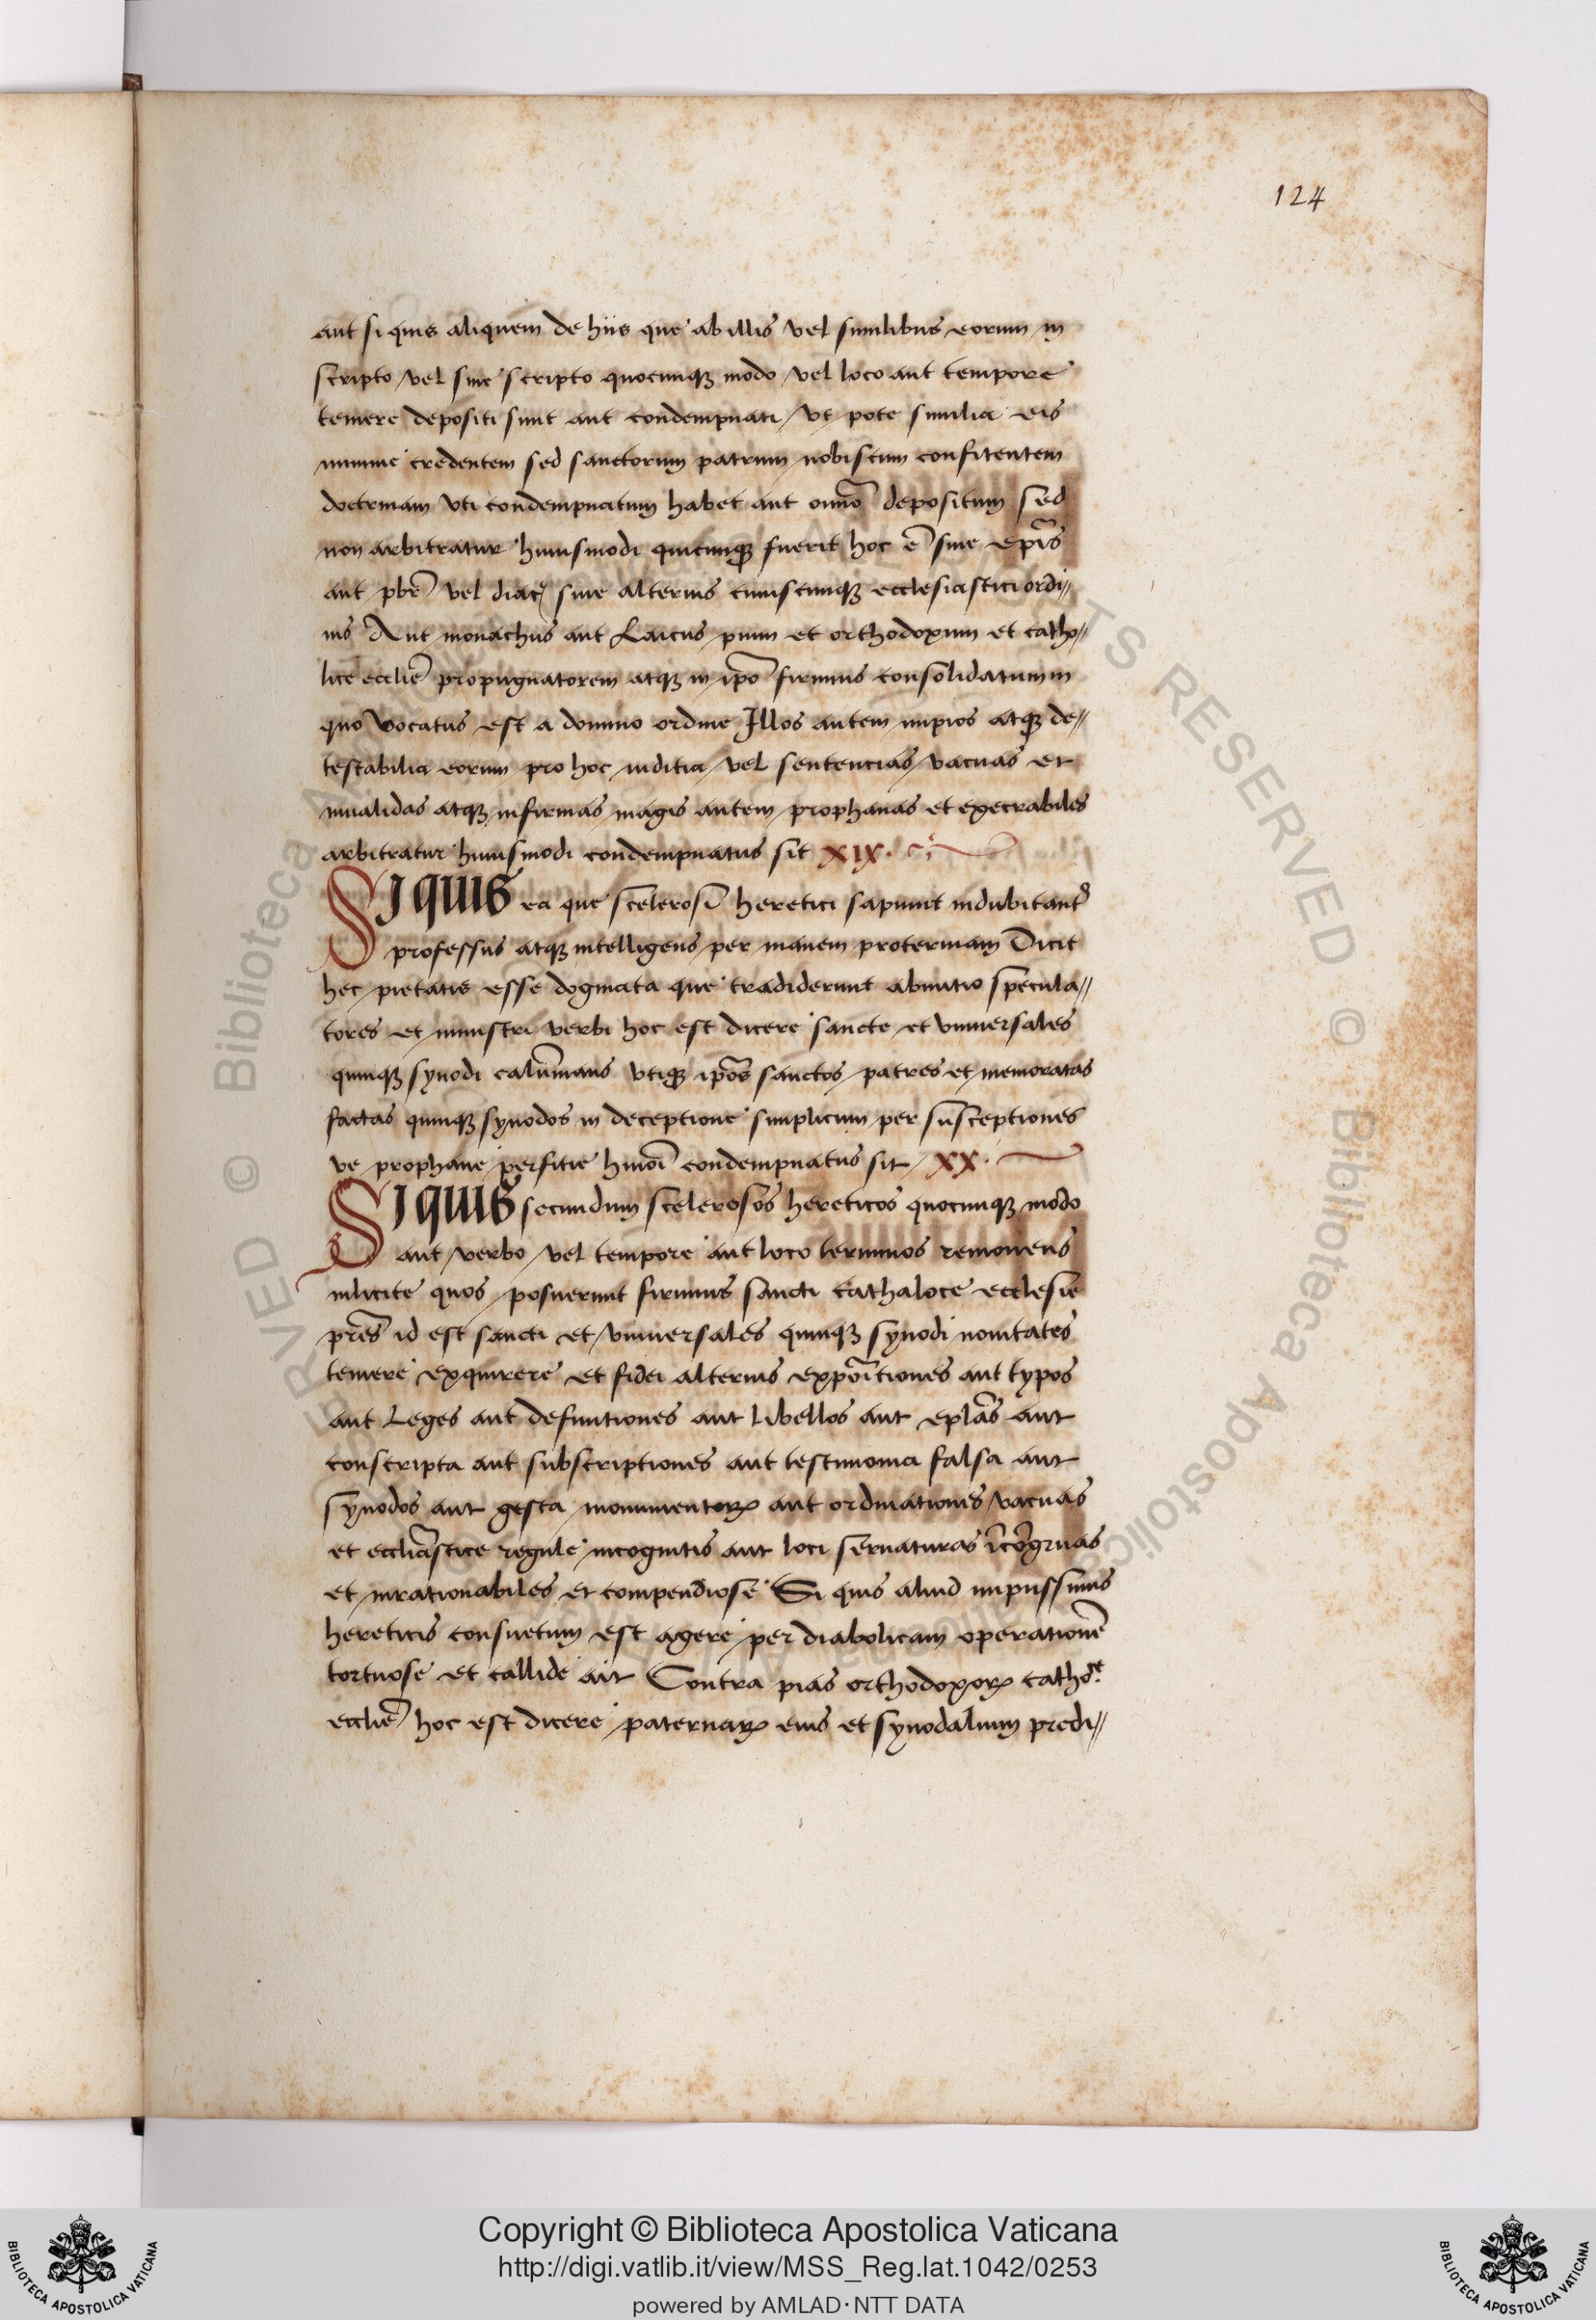 124
aut si quis aliquem de hiis que ab illis vel similibus eorum in
scripto vel sine scripto quocumqꝫ modo vel loco aut tempore
temere depositi sunt aut condempnati vt pote similia eis
minime credentem sed sanctorum patrum nobiscum confitentem
doctrinam vti condempnatum habet aut omnō depositum sed
non arbitratur huiusmodi quicumqꝫ fuerit hoc ē siue ep̄us
aut pbr̄ vel diac siue alterius cuiuscumqꝫ ecclesiastici ordi//
nis Aut monachus aut Laicus pium et orthodoxum et catho//
lice ecclīe propugnatorem atqꝫ in ip̄o firmius consolidatum in
quo vocatus est a domino ordine Illos autem impios atqꝫ de//
testabilia eorum pro hoc iuditia vel sentencias vacuas et
inualidas atqꝫ infirmas magis autem prophanas et execrabiles
arbitratur huiusmodi condempnatus sit XIX. c
SI QUIS ea que scelerosi heretici sapiunt indubitant
professus atqꝫ intelligens per inanem proteruiam Dicit
hec pietatis esse dogmata que tradiderunt abinitio specula//
tores et ministri verbi hoc est dicere sancte et vniuersales
quinqꝫ synodi calūmians vtiqꝫ ip̄os sanctos patres et memoratas
factas quinqꝫ synodos in deceptione simplicium per susceptiones
ve prophane perfitie hmōi condempnatus sit XX.
SI QUIS secundum scelerosos hereticos quocumqꝫ modo
aut verbo vel tempore aut loco terminos remouens
inlicite quos posuerunt firmius sancti cathaloce ecclesie
pr̄es id est sancti et vniuersales quinqꝫ synodi nouitates
temere exquirere et fidei alterius expōitiones aut typos
aut Leges aut definitiones aut libellos aut ep̄las aut
conscripta aut subscriptiones aut testimonia falsa aut
synodos aut gesta monumentoꝝ aut ordinationis vacuas
et ecclīastice regule incognitis aut loci seruaturas īcōgruas
et inrationabiles et compendiose Si quis aliud impiissimis
hereticis consuetum est agere per diabolicam operationē
tortuose et callide ait Contra pias orthodoxoꝝ catho
ecclīe hoc est dicere paternaꝝ eius et synodalium predi//
Copyright © Biblioteca Apostolica Vaticana
http://digi.vatlib.it/view/MSS_Reg.lat.1042/0253
powered by AMLAD·NTT DATA
BIBLIOTECA APOSTOLICA VATICANA
BIBLIOTECA APOSTOLICA VATICANA